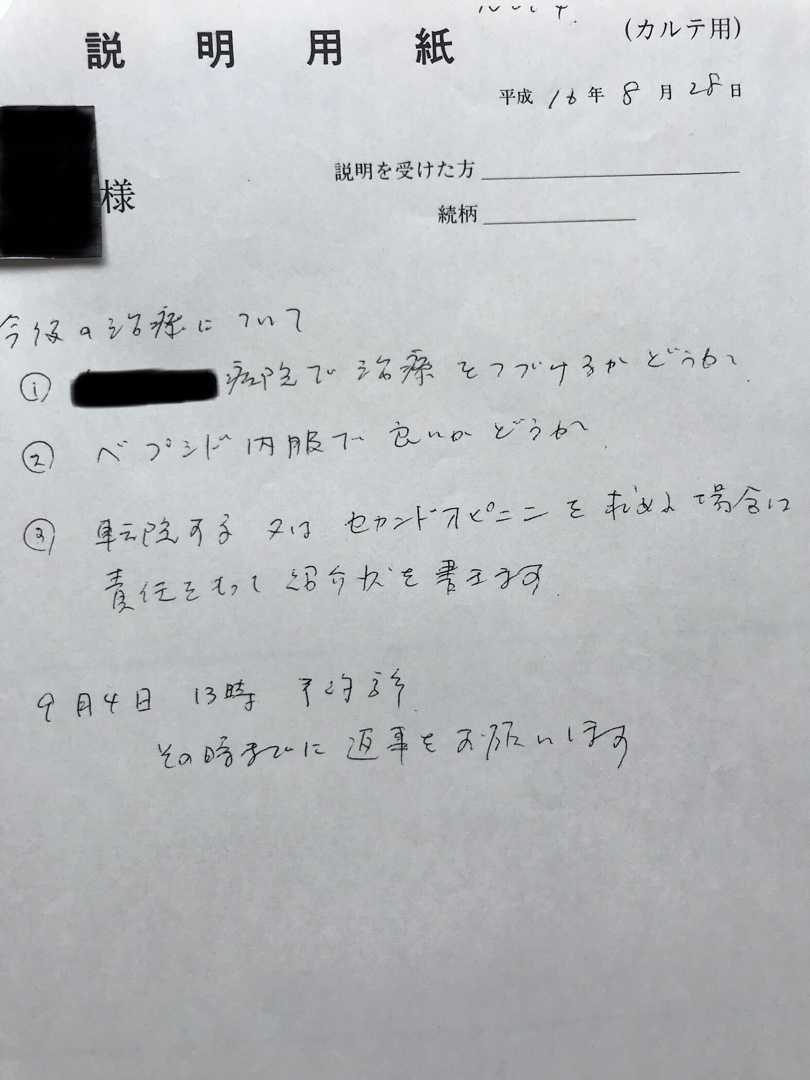 説明用紙
(カルテ用)
平成 16年 8月 28日
様
説明を受けた方
続柄
今後の治療について
① 病院で治療をつづけるかどうか
② ベプシド内服で良いかどうか
③ 転院する又はセカンドオピニニンを求める場合は
責任をもって紹介状を書きます
9月4日 13時 予約診
その時までに返事をお願いします